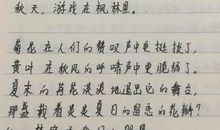 秋天，游戏在枫林里。
菊花在人们的赞叹声中更挺拔了，
黄叶在秋风的呼啸声中更脆弱了。
夏末的荷花淡淡地退出它的舞台，
那盆栽着是是夏日的留恋的花瓣？